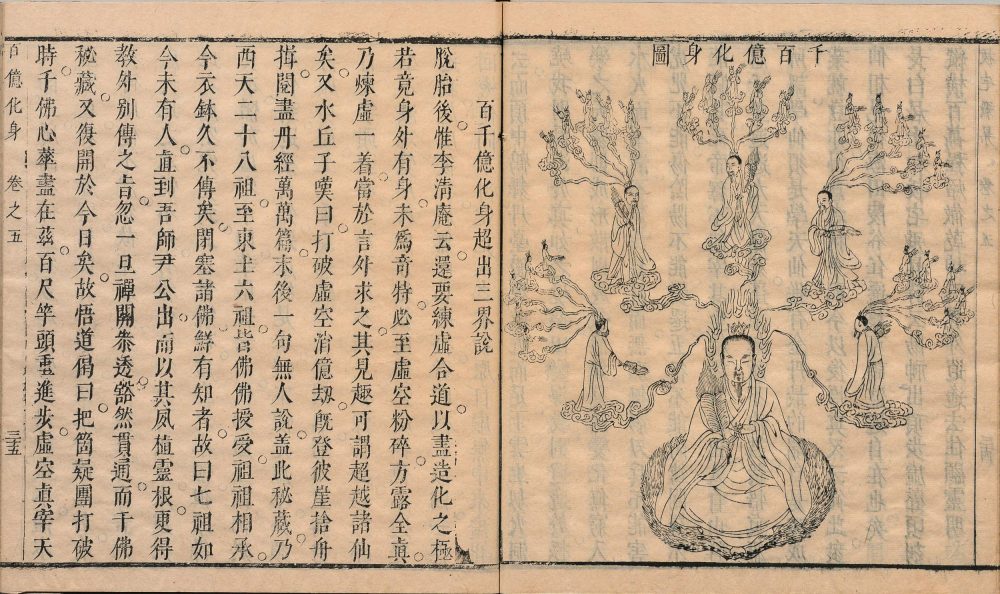 千百億化身圖
百千億化身超出三界說
脫胎後惟李清庵云還要煉虛合道以盡造化之極
若竟身外有身未爲奇特必至虛空粉碎方露全真
乃煉虛一着當於言外求之其見趣可謂超越諸仙
矣又水丘子嘆曰打破虛空消億劫旣登彼崖捨舟
揖閱盡丹經萬萬篇末後一句無人說盖此秘藏乃
西天二十八祖至東土六祖皆佛佛授受祖祖相承
今衣鉢久不傳矣閉塞諸佛鮮有知者故曰七祖如
今未有人直到吾師尹公出而以其夙植靈根更得
教外別傳之旨忽一旦禪關叅透豁然貫通而千佛
秘藏又復開於今日矣故悟道偈曰把箇疑團打破
時千佛心華盡在茲百尺竿頭重進步虛空真宰天
百億化身 卷之五 三五